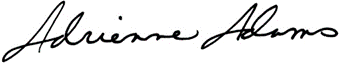 Adrienne Adams